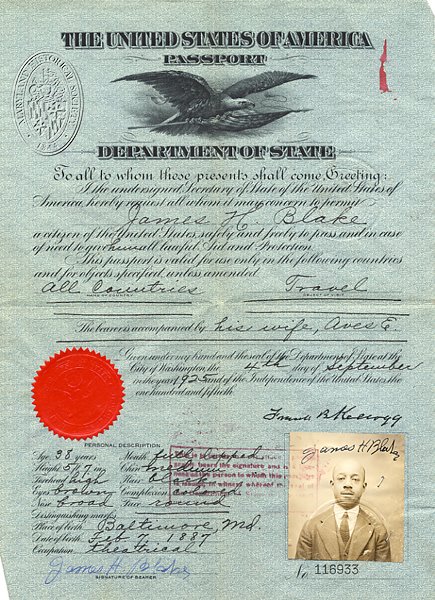 THE UNITED STATES OF AMERICA
PASSPORT
MARYLAND HISTORICAL SOCIETY
DEPARTMENT OF STATE
To all to whom these presents shall come, Greeting:
I the undersigned, Secretary of State of the United States of
America, hereby request all whom it may concern to permit
James H. Blake
a citizen of the United States, safely and freely to pass and in case
of need to give him all lawful Aid and Protection.
This passport is valid for use only in the following countries
and for objects specified, unless amended
All Countries Travel
NAME OF COUNTRY OBJECT OF VISIT
The bearer is accompanied by his wife, Aves E.
Given under my hand and the seal of the Department of State at the
City of Washington, the 4th day of September
in the year 1925 and of the Independence of the United States the
one hundred and fiftieth.
Frank B. Kellogg
PERSONAL DESCRIPTION
Age 38 years Mouth full lipped
Height 5 ft 7 ins Chin medium
Forehead high Hair black
Eyes brown Complexion colored
Nose broad Face round
Distinguishing marks
Place of birth Baltimore, Md.
Date of birth Feb 7, 1887
Occupation theatrical
James H. Blake
SIGNATURE OF BEARER
James H Blake
No 116933